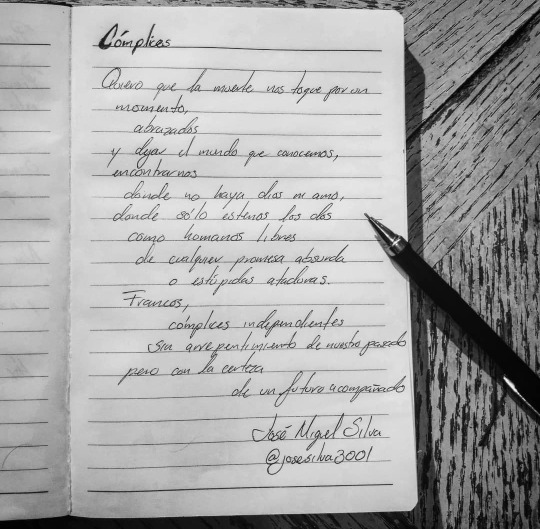 Cómplices
Quiero que la muerte nos toque por un
momento,
abrazados
y dejar el mundo que conocemos,
encontrarnos
donde no haya dios ni amo,
donde sólo estemos los dos
como humanos libres
de cualquier promesa absurda
o estúpidas ataduras.
Francos,
cómplices independientes
sin arrepentimiento de nuestro pasado
pero con la certeza
de un futuro acompañado
José Miguel Silva
@josesilva3001